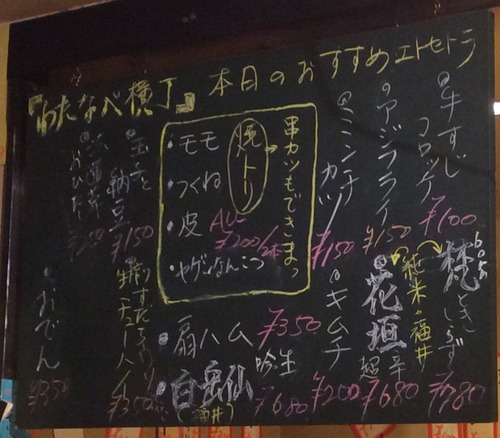 『わたなべ横丁』 本日のおすすめエトセトラ
牛すじ
コロッケ
¥100
アジフライ
¥150
ミンチ
カツ
¥150
串カツもできまっ
焼トリ
・モモ
・つくね
・皮
・ヤゲンなんこつ
ALL
¥200/2本
玉子と
納豆
¥150
梵
ときしらず
¥780
純米・福井
花垣
超辛
¥680
キムチ
¥200
・扇ハム ¥350
・白岳仙 吟生
(福井) ¥680
¥350
おでん
¥350